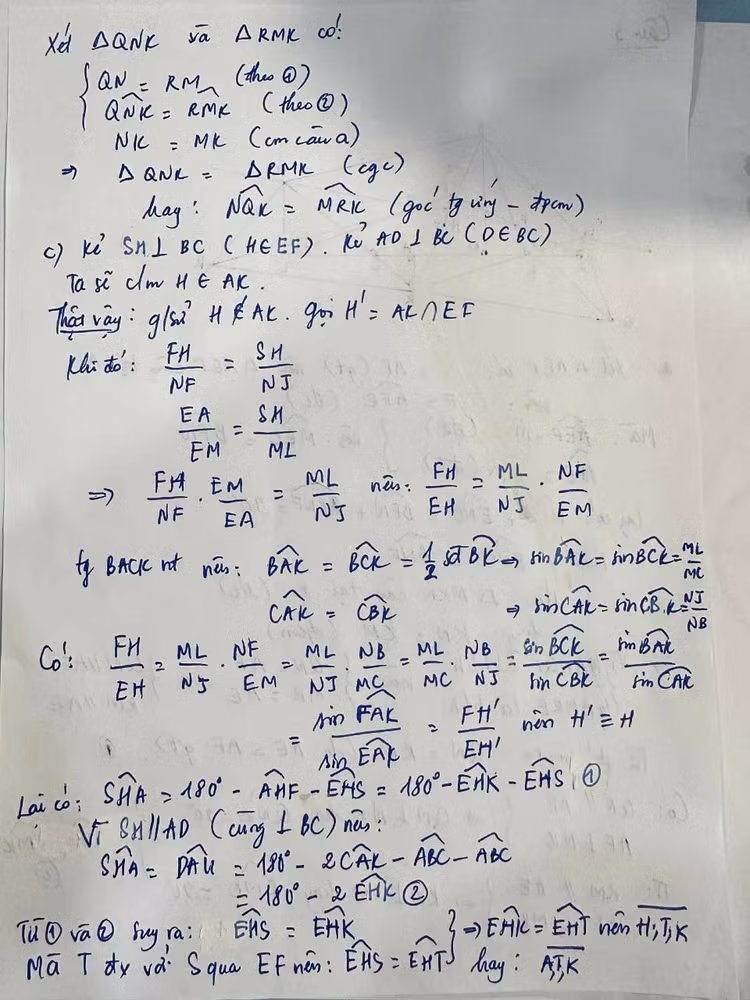 Xét ΔQNK và ΔRMK có:
QN = RM (theo ①)
\widehat{QNK} = \widehat{RMK} (theo ②)
NK = MK (cm câu a)
⇒ ΔQNK = ΔRMK (cgc)
hay: \widehat{NQK} = \widehat{MRK} (góc tg ứng - đpcm)
c) Kẻ SH⊥BC (H∈EF). Kẻ AD⊥BC (D∈BC)
Ta sẽ c/m H∈AK.
Thật vậy: g/sử H∉AK. gọi H' = AK∩EF
Khi đó: \frac{FH}{NF} = \frac{SH}{NJ}
\frac{EA}{EM} = \frac{SH}{ML}
⇒ \frac{FH}{NF} . \frac{EM}{EA} = \frac{ML}{NJ} nên: \frac{FH}{EH} = \frac{ML}{NJ} . \frac{NF}{EM}
tg BACK nt nên: \widehat{BAK} = \widehat{BCK} = \frac{1}{2} sđ \widehat{BK} ⇒ sin\widehat{BAK} = sin\widehat{BCK} = \frac{ML}{MC}
\widehat{CAK} = \widehat{CBK} ⇒ sin\widehat{CAK} = sin\widehat{CBK} = \frac{NJ}{NB}
Có: \frac{FH}{EH} = \frac{ML}{NJ} . \frac{NF}{EM} = \frac{ML}{NJ} . \frac{NB}{MC} = \frac{ML}{MC} . \frac{NB}{NJ} = \frac{sin\widehat{BCK}}{sin\widehat{CBK}} = \frac{sin\widehat{BAK}}{sin\widehat{CAK}}
= \frac{sin\widehat{FAK}}{sin\widehat{EAK}} = \frac{FH'}{EH'} nên H'≡H
Lại có: \widehat{SHA} = 180° - \widehat{AHF} - \widehat{EHS} = 180° - \widehat{EHK} - \widehat{EHS} ①
Vì SH//AD (cùng ⊥BC) nên:
\widehat{SHA} = \widehat{DAH} = 180° - 2\widehat{CAK} - \widehat{ABC} - \widehat{ABC}
= 180° - 2\widehat{EHK} ②
Từ ① và ② suy ra: \widehat{EHS} = \widehat{EHK}
Mà T đx với S qua EF nên: \widehat{EHS} = \widehat{EHT} } ⇒ \widehat{EHK} = \widehat{EHT} nên \overline{H,T,K}
hay: \overline{A,T,K}